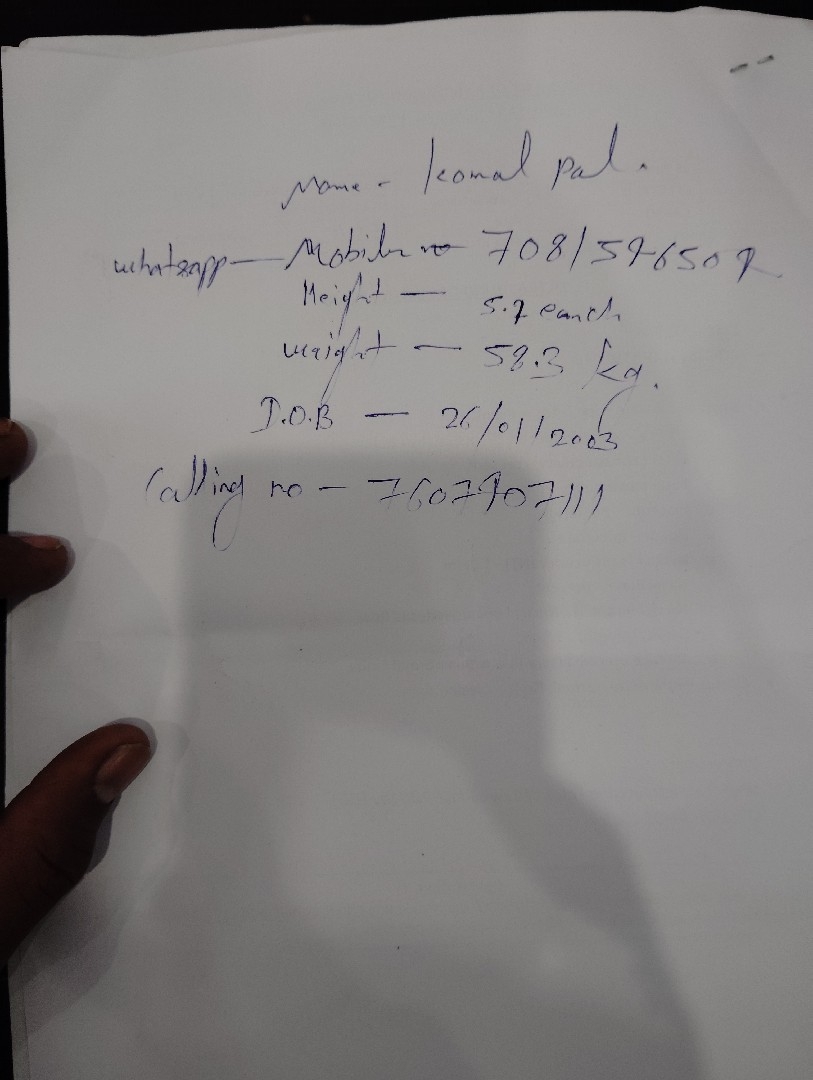 Name - Komal pal.
whatsapp — Mobile no - 7081596502
Height — 5.7 earch
weight — 58.3 kg.
D.O.B — 26/01/2003
Calling no - 7607907111